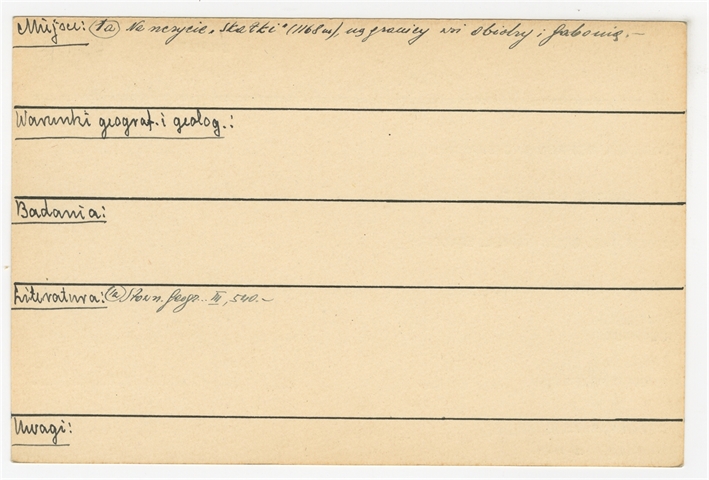 Miejsce: 1a Na szczycie „Skałki" (1168 m), na granicy wsi Obidzy i Jaboniq.—
Warunki geograf. i geolog.:
Badania:
Literatura: 1a Słown. Geogr. III, 540.—
Uwagi: